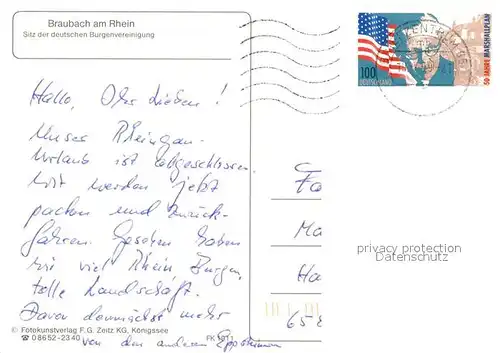 Braubach am Rhein
Sitz der deutschen Burgenvereinigung
Hallo, Ihr Lieben!
Unser Rheingau-
Urlaub ist abgeschlossen.
Wir werden jetzt
packen und zurück-
fahren. Gesehen haben
wir viel Rhein, Burgen,
tolle Landschaft.
Davon demnächst mehr
von den anderen Eppsteinern
© Fotokunstverlag F. G. Zeitz KG, Königssee
✆ 0 86 52 - 23 40
100
DEUTSCHLAND
50 JAHRE MARSHALLPLAN
BRIEFZENTRUM
Fa
Ma
Ha
658
privacy protection
Datenschutz